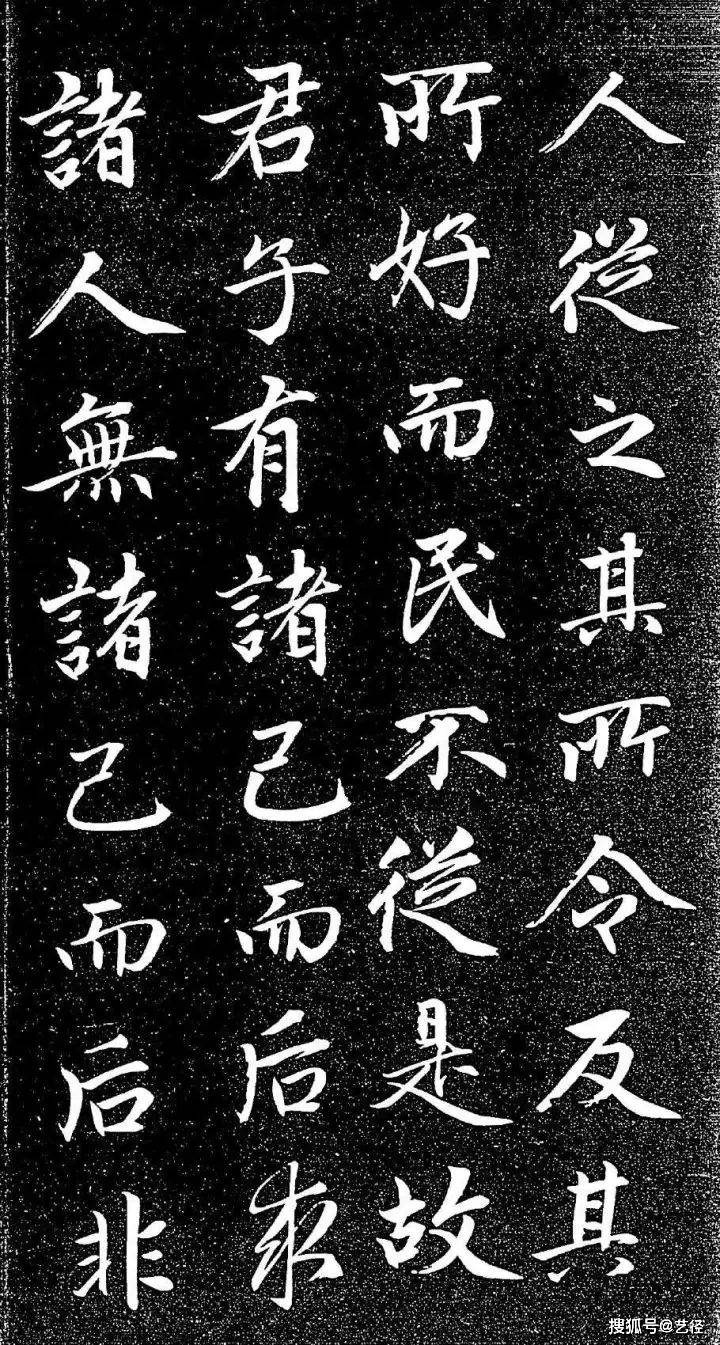 人從之其所令反其
所好而民不從是故
君子有諸己而后求
諸人無諸己而后非
搜狐号@艺径